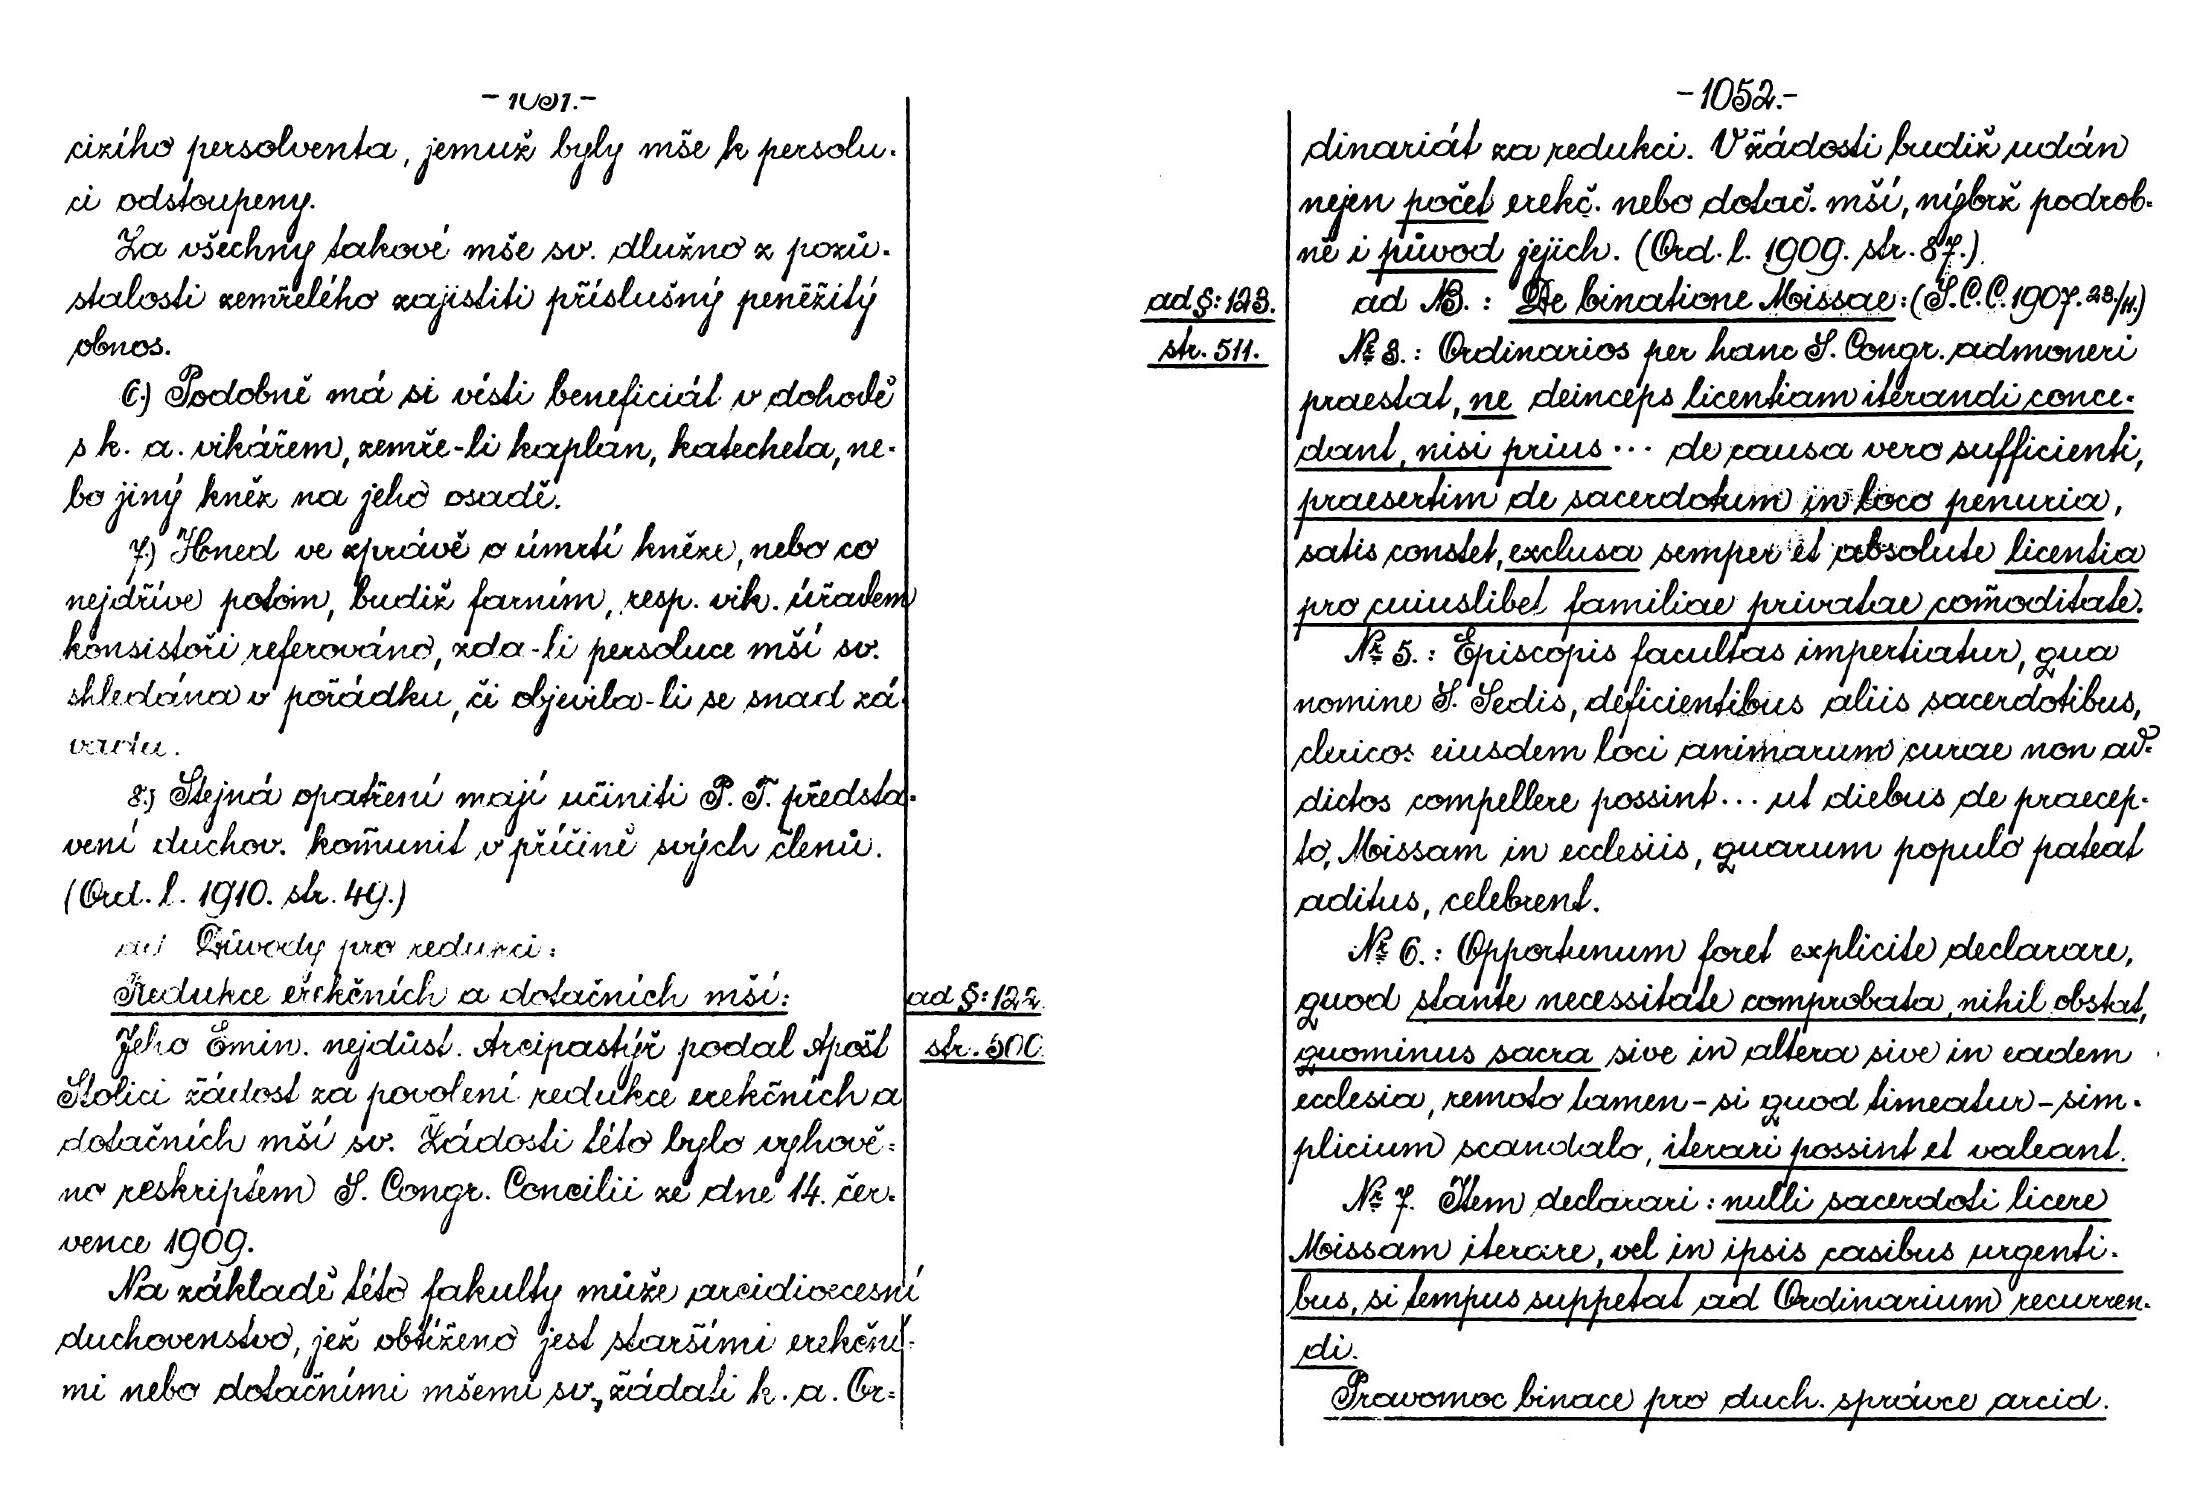 - 1051.-
cizího persolventa, jemuž byly mše k persolu-
ci odstoupeny.
Za všechny takové mše sv. dlužno z pozů-
stalosti zemřelého zajistiti příslušný peněžitý
obnos.
6.) Podobně má si vésti beneficiát v dohodě
s k. a. vikářem, zemře-li kaplan, katecheta, ne-
bo jiný kněz na jeho osadě.
7.) Hned ve zprávě o úmrtí kněze, nebo co
nejdříve potom, budiž farním, resp. vik. úřadem
konsistoři referováno, zda-li persoluce mší sv.
shledána v pořádku, či objevila-li se snad zá-
vada.
8.) Stejná opatření mají učiniti P. T. předsta-
vení duchov. kom̃unit v příčině svých členů.
(Ord. l. 1910. str. 49.)
ad Důvody pro redukci:
Redukce erekčních a dotačních mší:
ad §: 122.
str. 500.
Jeho Emin. nejdůst. Arcipastýř podal Apošt
Stolici žádost za povolení redukce erekčních a
dotačních mší sv. Žádosti této bylo vyhově-
no reskriptem S. Congr. Concilii ze dne 14. čer-
vence 1909.
Na základě této fakulty může arcidiecesní
duchovenstvo, jež obtíženo jest staršími erekční-
mi nebo dotačními mšemi sv., žádati k. a. Or-
- 1052.-
dinariát za redukci. V žádosti budiž udán
nejen počet erekč. nebo dotač. mší, nýbrž podrob-
ně i původ jejich. (Ord. l. 1909. str. 87.)
ad §: 123.
str. 511.
ad NB. : De binatione Missae: (S.C.C. 1907. 23./11.)
№ 3. : Ordinarios per hanc S. Congr. admoneri
praestat, ne deinceps licentiam iterandi conce-
dant, nisi prius ... de causa vero sufficienti,
praesertim de sacerdotum in loco penuria,
satis constet, exclusa semper et absolute licentia
pro cuiuslibet familiae privatae com̃oditate.
№ 5. : Episcopis facultas impertiatur, qua
nomine S. Sedis, deficientibus aliis sacerdotibus,
clericos eiusdem loci animarum curae non ad-
dictos compellere possint ... ut diebus de praecep-
to, Missam in ecclesiis, quarum populo pateat
aditus, celebrent.
№ 6. : Opportunum foret explicite declarare,
quod stante necessitate comprobata, nihil obstat,
quominus sacra sive in altera sive in eadem
ecclesia, remoto tamen - si quod timeatur - sim-
plicium scandalo, iterari possint et valeant.
№ 7. Item declarari : nulli sacerdoti licere
Missam iterare, vel in ipsis casibus urgenti-
bus, si tempus suppetat ad Ordinarium recurren-
di.
Pravomoc binace pro duch. správce arcid.